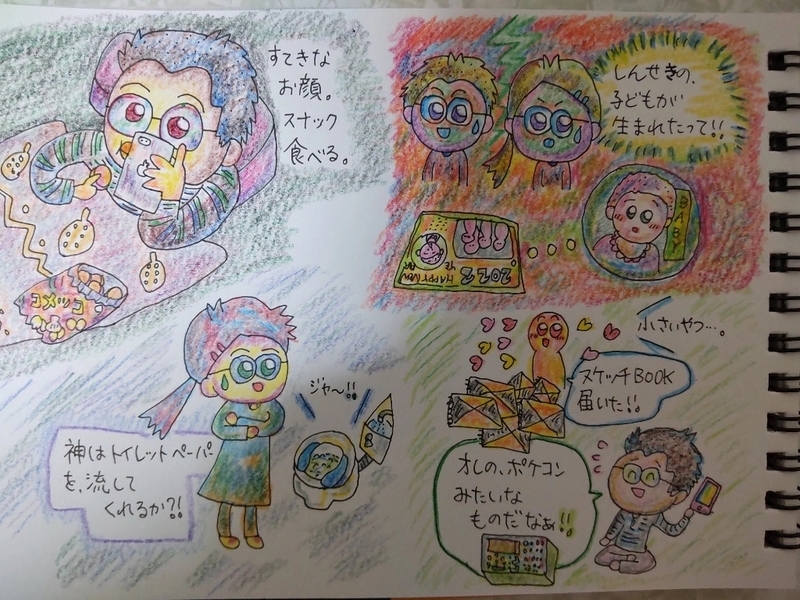 すてきな
お顔。
スナック
食べる。
コメッコ
しんせきの、
子どもが
生まれたって!!
BABY
2022
HAPPY NEW
神はトイレットペーパー
を、流して
くれるか?!
ジャ〜!!
小さいやつ…。
スケッチBOOK
届いた!!
オレの、ポケコン
みたいな
ものだなぁ!!